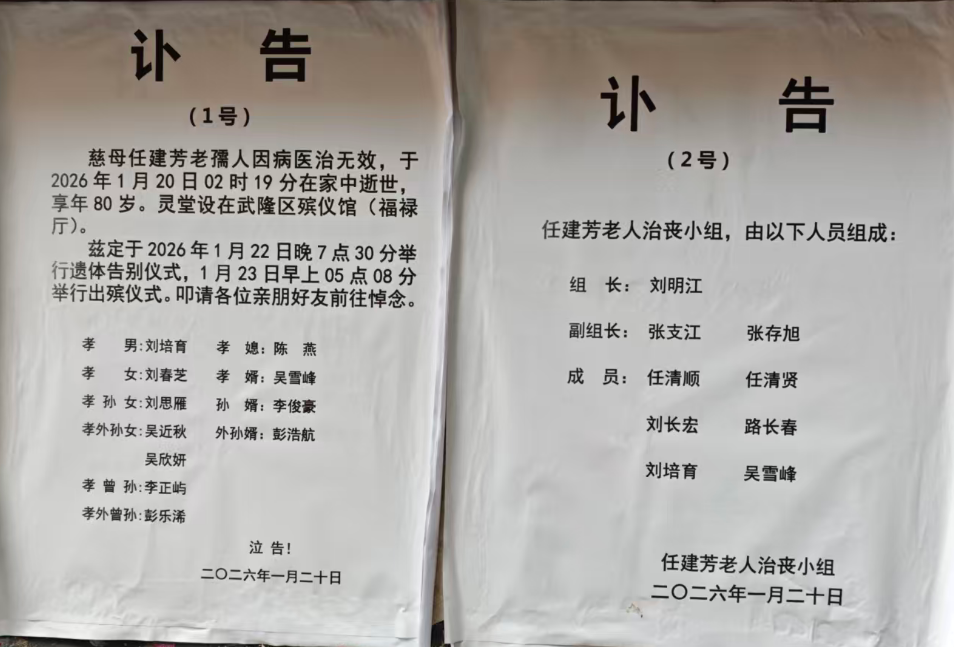 讣 告
(1号)
慈母任建芳老孺人因病医治无效，于
2026年1月20日02时19分在家中逝世，
享年80岁。灵堂设在武隆区殡仪馆（福禄
厅）。
兹定于2026年1月22日晚7点30分举
行遗体告别仪式，1月23日早上05点08分
举行出殡仪式。叩请各位亲朋好友前往悼念。
孝 男:刘培育 孝 媳:陈 燕
孝 女:刘春芝 孝 婿:吴雪峰
孝 孙 女:刘思雁 孙 婿:李俊豪
孝外孙女:吴近秋 外孙婿:彭浩航
吴欣妍
孝 曾 孙:李正屿
孝外曾孙:彭乐浠
泣 告!
二〇二六年一月二十日
讣 告
(2号)
任建芳老人治丧小组，由以下人员组成：
组 长： 刘明江
副组长： 张支江 张存旭
成 员： 任清顺 任清贤
刘长宏 路长春
刘培育 吴雪峰
任建芳老人治丧小组
二〇二六年一月二十日